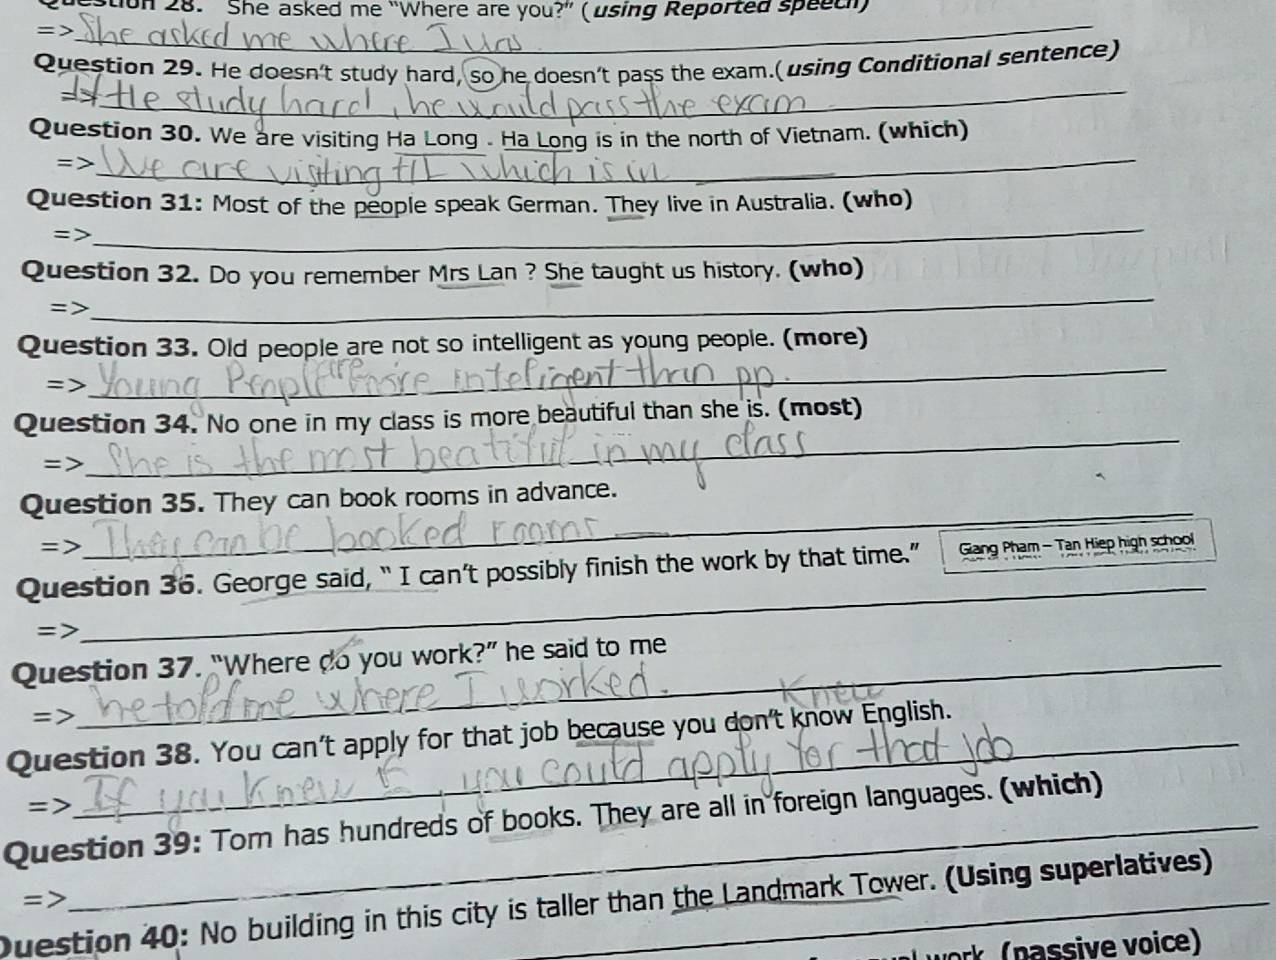 28. She asked me “Where are you?” (using Reported speech)
=> She asked me where I was
Question 29. He doesn’t study hard, so he doesn’t pass the exam.(using Conditional sentence)
=> He study hard, he would pass the exam.
Question 30. We are visiting Ha Long . Ha Long is in the north of Vietnam. (which)
=> We are visiting HL which is in
Question 31: Most of the people speak German. They live in Australia. (who)
=>
Question 32. Do you remember Mrs Lan ? She taught us history. (who)
=>
Question 33. Old people are not so intelligent as young people. (more)
=> Young People are more inteligent than pp.
Question 34. No one in my class is more beautiful than she is. (most)
=> She is the most beatiful in my class
Question 35. They can book rooms in advance.
=> They can be booked rooms
Question 36. George said, “ I can’t possibly finish the work by that time.”
Giang Pham – Tan Hiep high school
=>
Question 37. “Where do you work?” he said to me
=> he told me where I worked.
knew
Question 38. You can’t apply for that job because you don’t know English.
=> If you knew E, you could apply for that job
Question 39: Tom has hundreds of books. They are all in foreign languages. (which)
=>
Question 40: No building in this city is taller than the Landmark Tower. (Using superlatives)
work (passive voice)